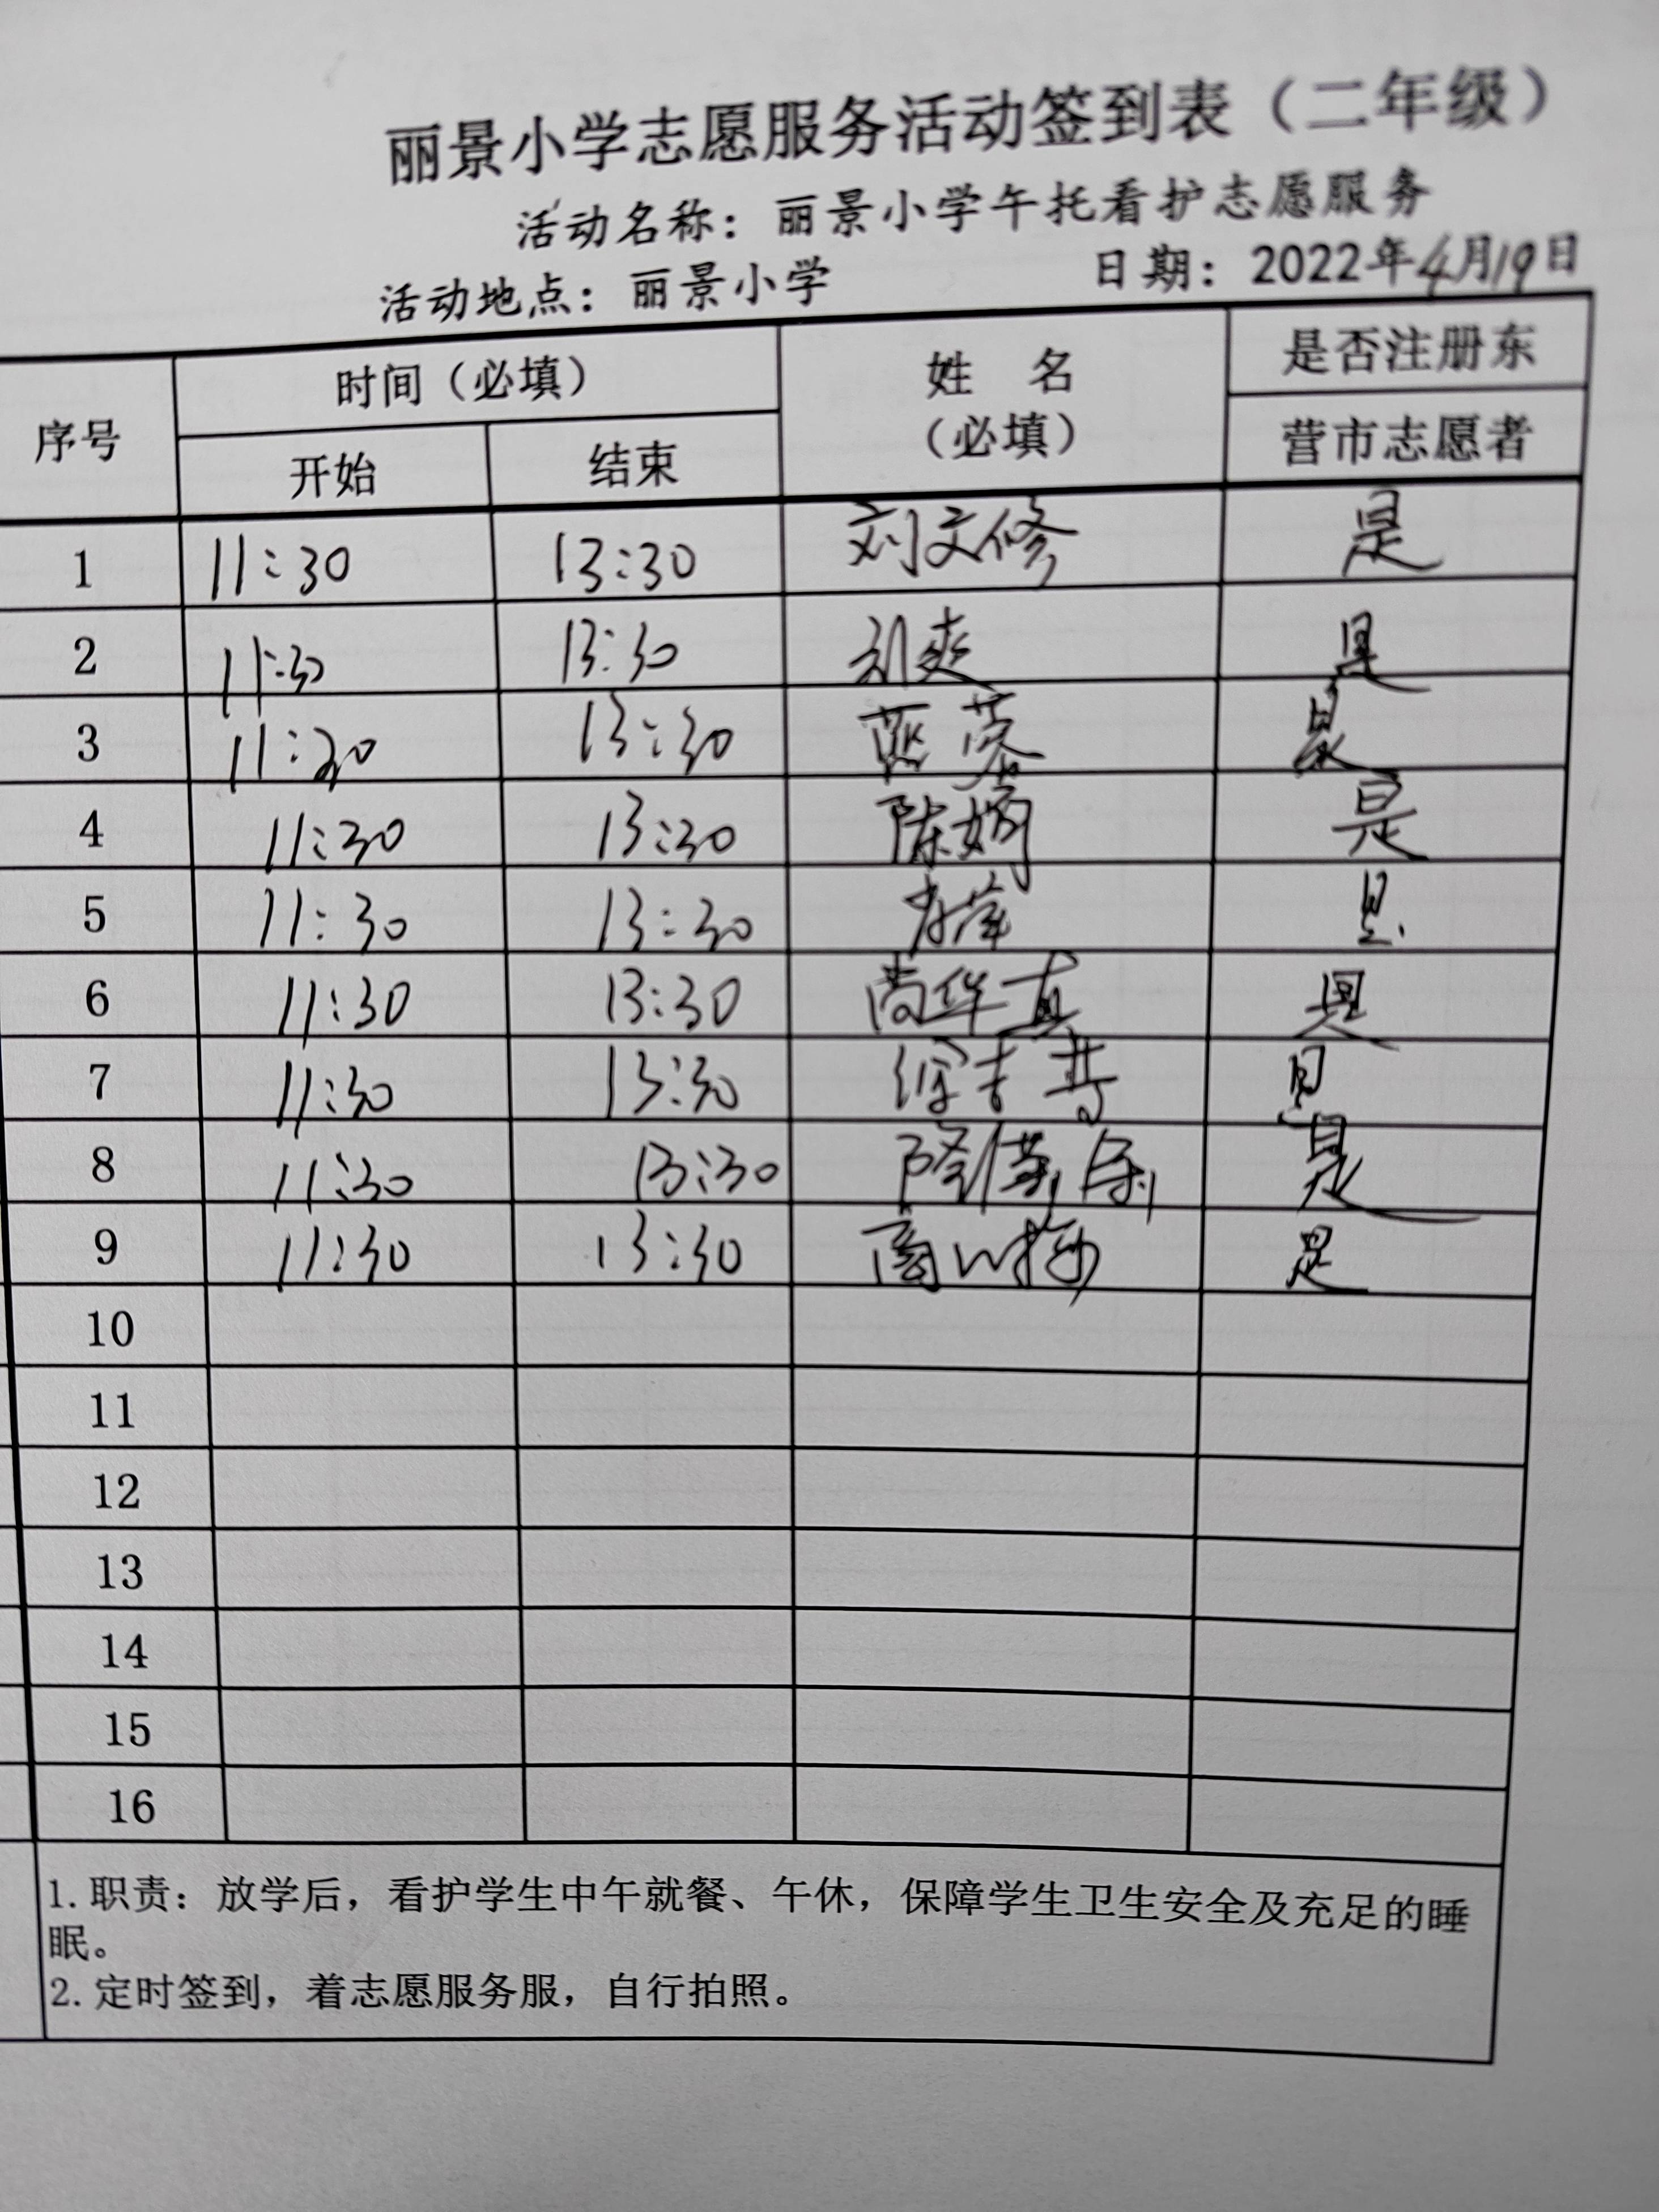 丽景小学志愿服务活动签到表（二年级）
活动名称：丽景小学午托看护志愿服务
活动地点：丽景小学 日期：2022年4月19日
序号 时间（必填） 姓 名（必填） 是否注册东营市志愿者
开始 结束
1 11:30 13:30 刘文修 是
2 11:30 13:30 刘爽 是
3 11:30 13:30 是
4 11:30 13:30 陈娟 是
5 11:30 13:30 是
6 11:30 13:30 尚华真 是
7 11:30 13:30 是
8 11:30 13:30 是
9 11:30 13:30 是
10
11
12
13
14
15
16
1.职责：放学后，看护学生中午就餐、午休，保障学生卫生安全及充足的睡
眠。
2.定时签到，着志愿服务服，自行拍照。